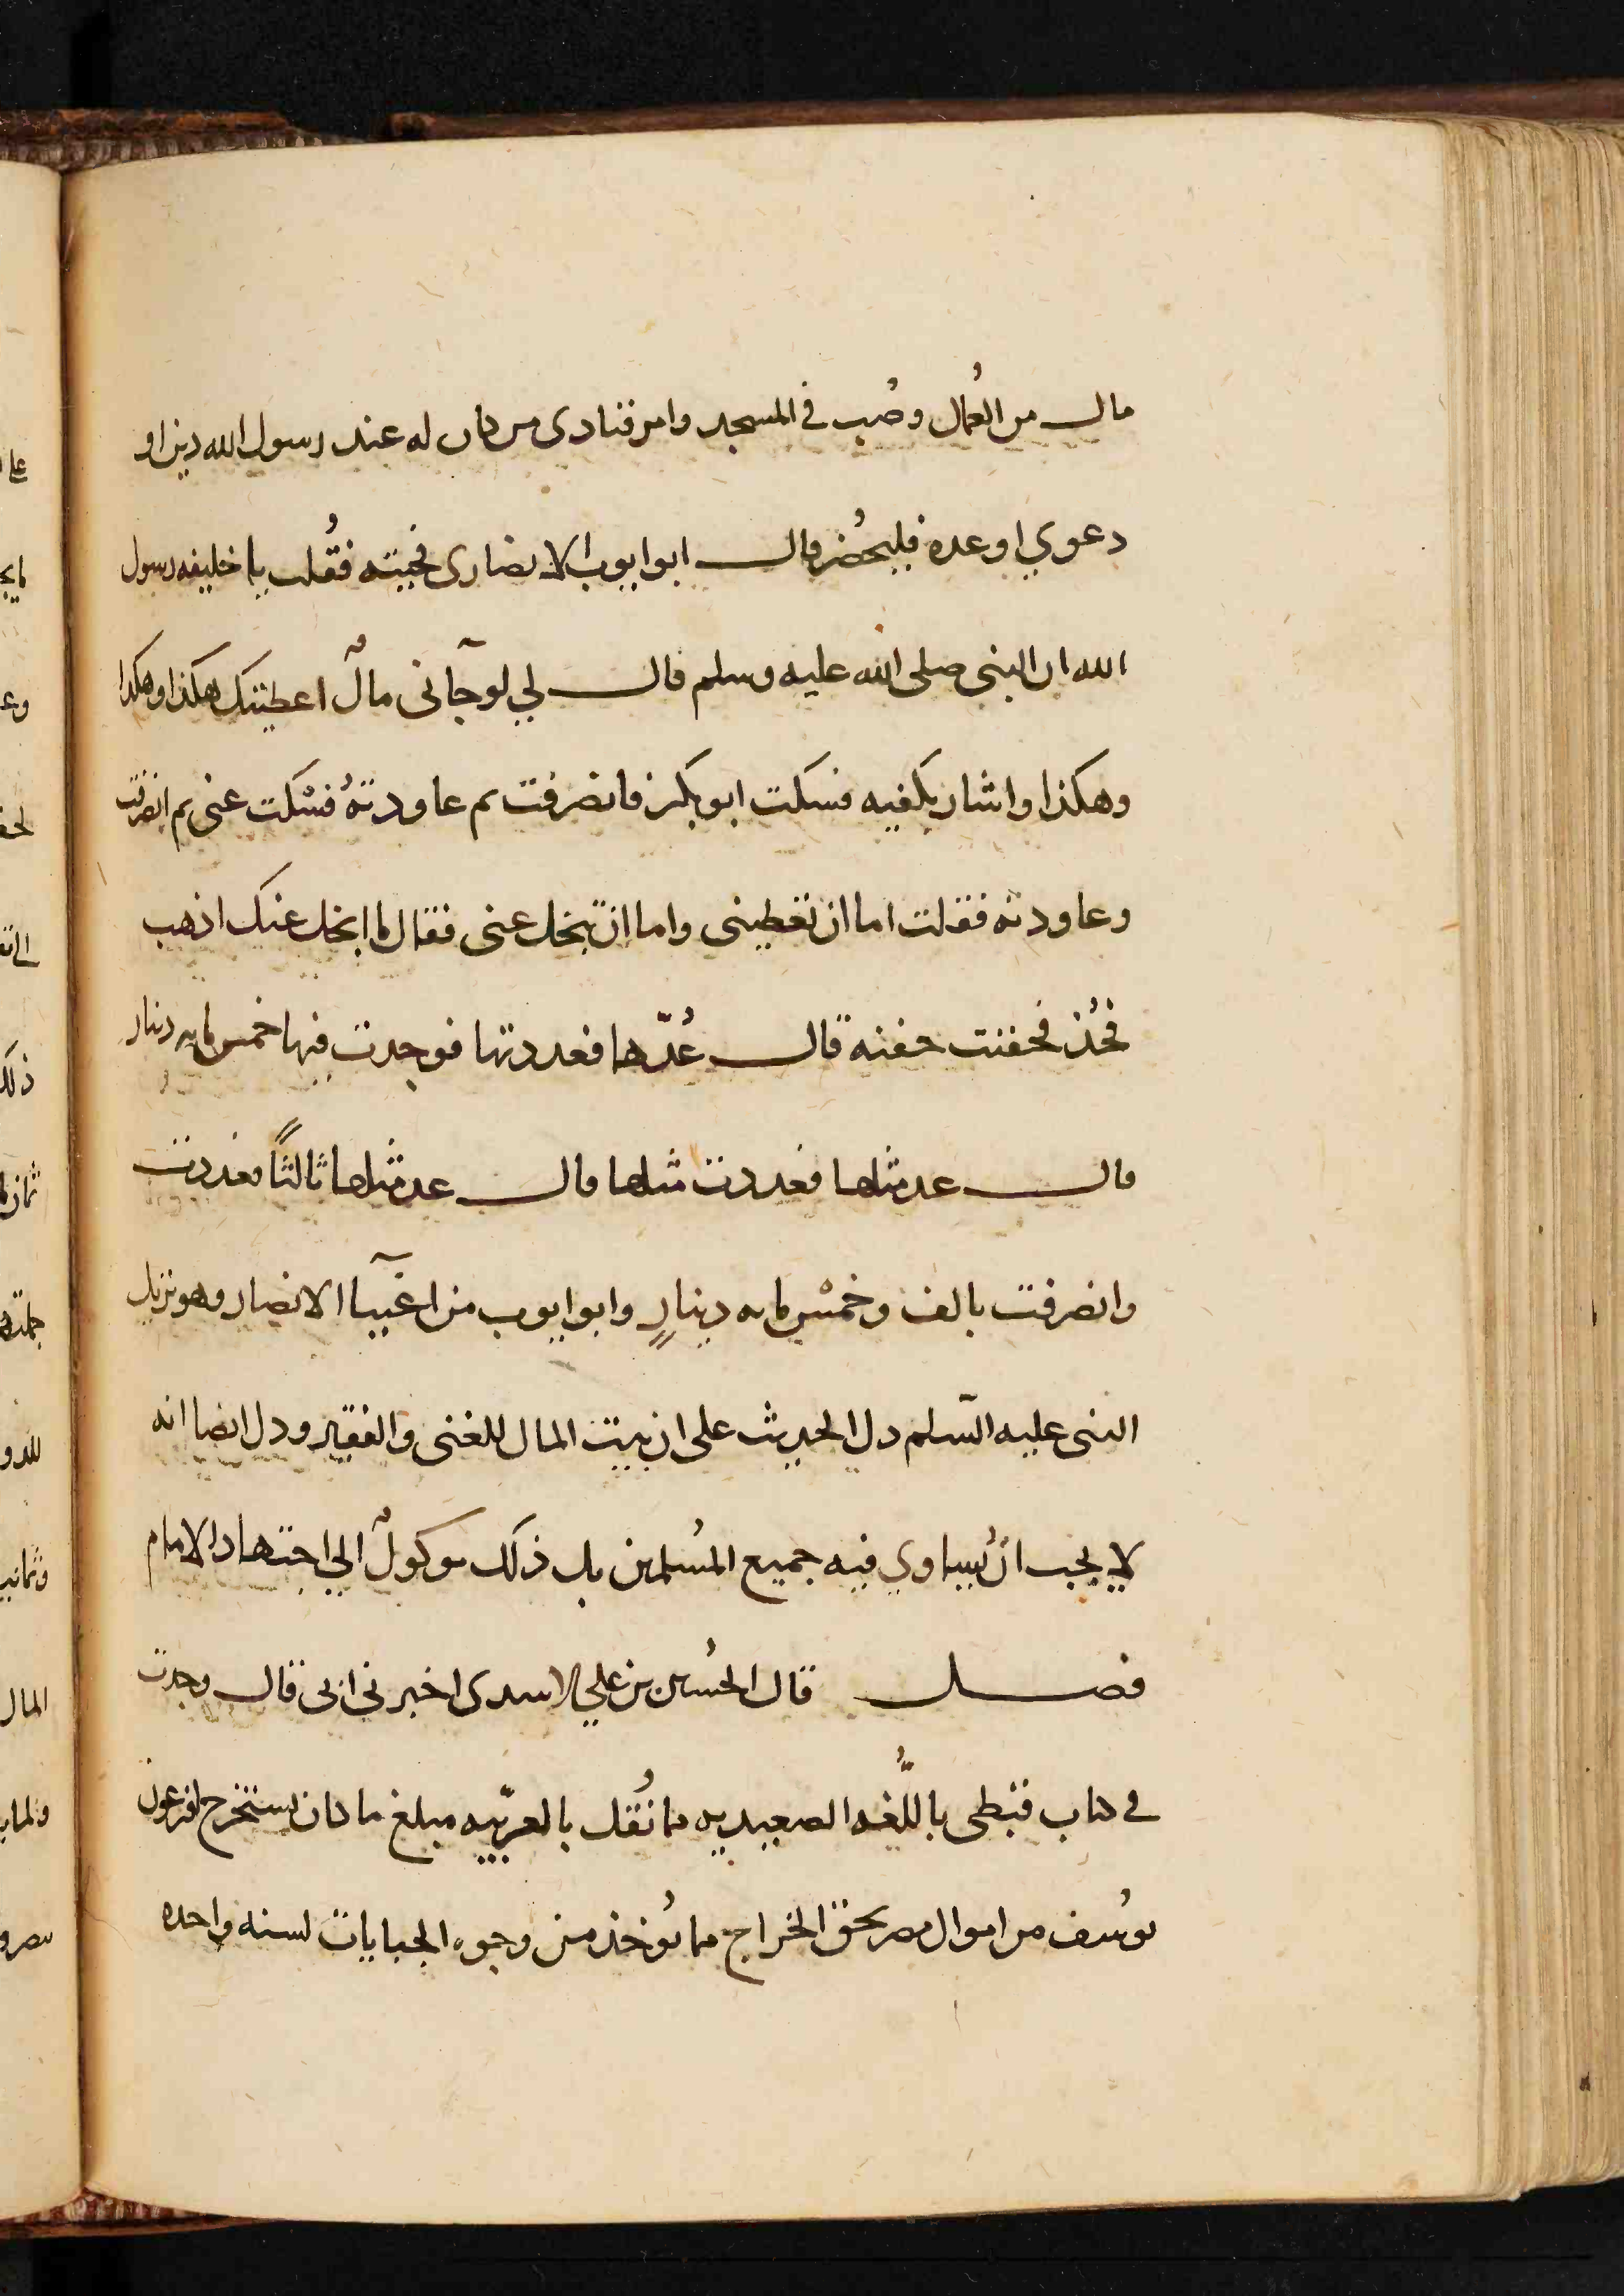 مال من العُمال وصُب في المسجد وامر فنادى من كان له عند رسول الله دين او
دعوي او عده فليحضُر قال ابو ايوب الانصارى فجيته فقُلت يا خليفه رسول
الله ان النبى صلى الله عليه وسلم قال لي لو جآنى مالٌ اعطيتك هكذا وهكذا
وهكذا واشار بكفيه فسكت ابو بكر فانصرفت ثم عاودتهُ فسْكت عنى ثم انصرفت
وعاودته فقلت اما ان تعطينى واما ان تبخل عنى فقال ما ابخل عنك اذهب
فخُذ فحفنت حفنه قال عُدّها فعددتها فوجدت فيها خمس مايه دينار
قال عد مثلها فعددت مثلها قال عد مثلها ثالثًا فعددت
وانصرفت بالف وخمْس مايه دينارٍ وابو ايوب من اغنيآا الانصار وهو نزيل
النبى عليه السّلم دل الحديث على ان بيت المال للغنى والفقير ودل ايضا انه
لا يجب انْ يُساوي فيه جميع المُسلمين بل ذلك موكولٌ الي اجتهاد الامام
فصل قال الحُسين بن علي الاسدى اخبرني ابى قال وجدت
في كتاب قبطى باللُّغه الصعيديه مما نُقل بالعربّيه مبلغ ما كان يستخرج لفرعون
يوسُف من اموال مصر بحق الخراج مما يُوخذ من وجوه الجبايات لسنه واحده